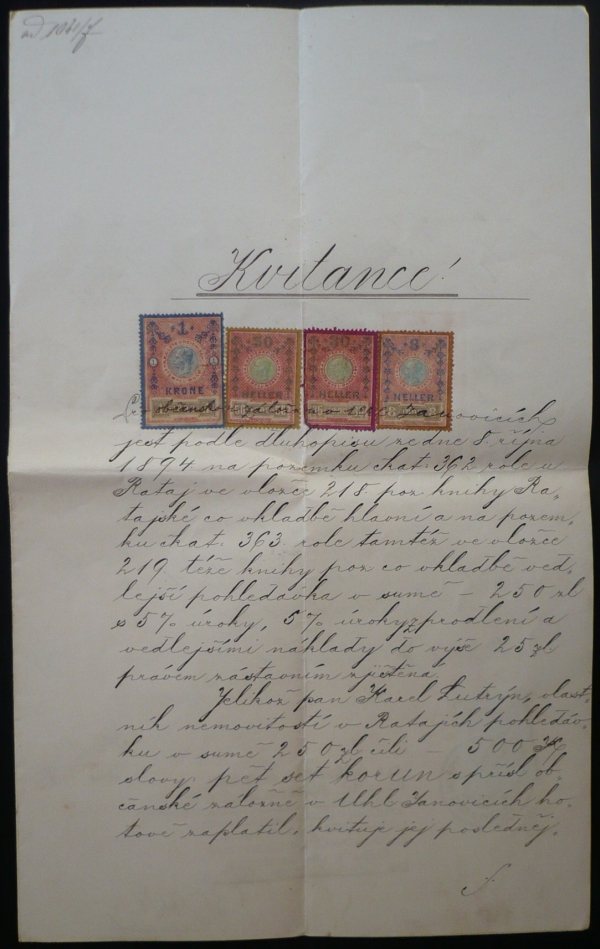 ad 1061/7
Kvitance!
1
KRONE
50
HELLER
30
HELLER
8
HELLER
Pro občanskou záložnu v Uhl. Janovicích
jest podle dluhopisu ze dne 8. října
1894 na pozemku č kat. 362 role u
Rataj ve vložce 218. poz knihy Ra-
tajské co vkladbě hlavní a na pozem-
ku č kat. 363. role tamtéž ve vložce
219. téže knihy poz co vkladbě ved-
lejší pohledávka v sumě - 250 zl
s 5% úroky, 5% úroky z prodlení a
vedlejšími náklady do výše 25 zl
právem zástavním zjištěna.
Jelikož pan Karel Lutrýn, vlast-
ník nemovitostí v Ratajích pohledáv-
ku v sumě 250 zl čili - 500 K
slovy: pět set korun s přísl ob-
čanské záložně v Uhl Janovicích ho-
tově zaplatil, kvituje jej posledněj.